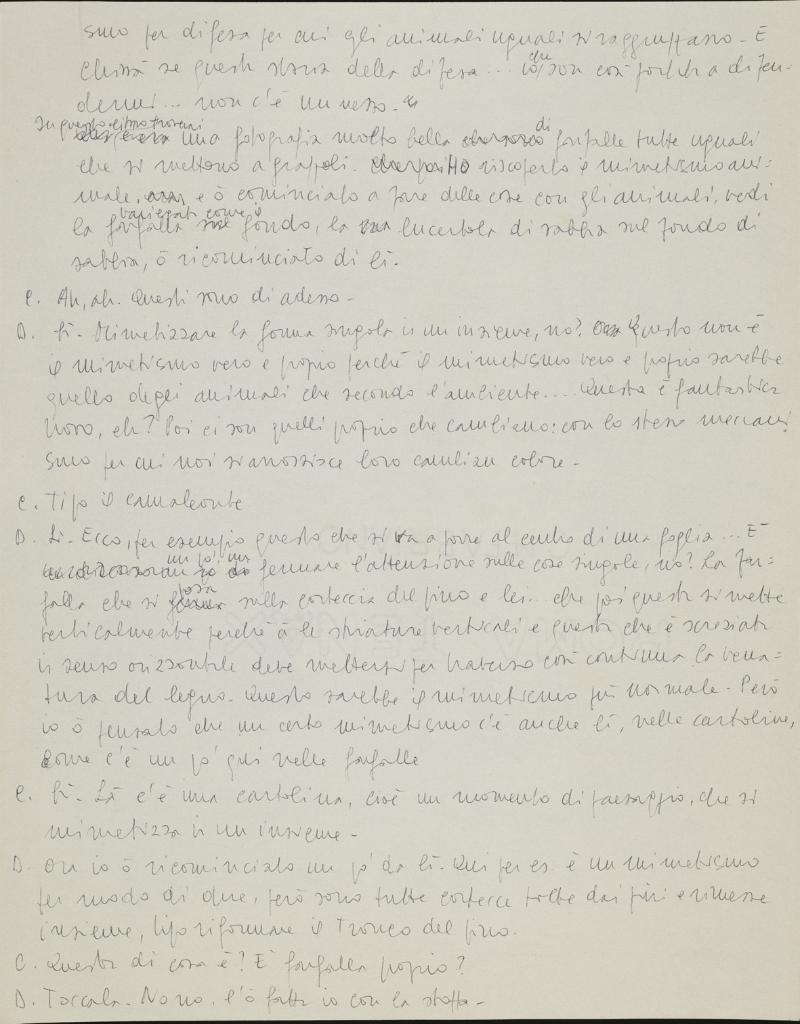 smo per difesa per cui gli animali uguali si raggruppano - E
chissà se questa storia della difesa... che io son così portata a difen-
dermi... non c'è un nesso -
In questo ritmo troverai
una fotografia molto bella di farfalle tutte uguali
che si mettono a grappoli. Ho riscoperto il mimetismo ani-
male, e ò cominciato a fare delle cose con gli animali, vedi
variegati come il
la farfalla fondo, la lucertola di sabbia sul fondo di
sabbia, ò ricominciato di lì.
C. Ah, ah. Questi sono di adesso -
D. Sì - Mimetizzare la forma singola in un insieme, no? Questo non è
il mimetismo vero e proprio perché il mimetismo vero e proprio sarebbe
quello degli animali che secondo l'ambiente.... Questa è fantastica
, eh? Poi ci son quelli proprio che cambiano: con lo stesso meccani
smo per cui noi si arrossisce loro cambian colore -
C. Tipo il camaleonte
D. Sì - Ecco, per esempio questo che si va a porre al centro di una foglia... È
un pò, un
fermare l'attenzione sulle cose singole, no? La far=
falla che si posa sulla corteccia del pino e lei.. che poi questa si mette
verticalmente perché à le striature verticali e questa che è screziata
in senso orizzontale deve mettersi per traverso così continua la vena=
tura del legno. Questo sarebbe il mimetismo più normale - Però
io ò pensato che un certo mimetismo c'è anche lì, nelle cartoline,
come c'è un pò qui nelle farfalle
C. Sì - Là c'è una cartolina, cioè un momento di paesaggio, che si
mimetizza in un insieme -
D. Ora io ò ricominciato un pò da lì. Qui per es. è un mimetismo
per modo di dire, però sono tutte cortecce tolte dai pini e rimesse
insieme, tipo riformare il Tronco del pino.
C. Questa di cosa è? È farfalla proprio?
D. Toccala - No no, l'ò fatta io con la stoffa -